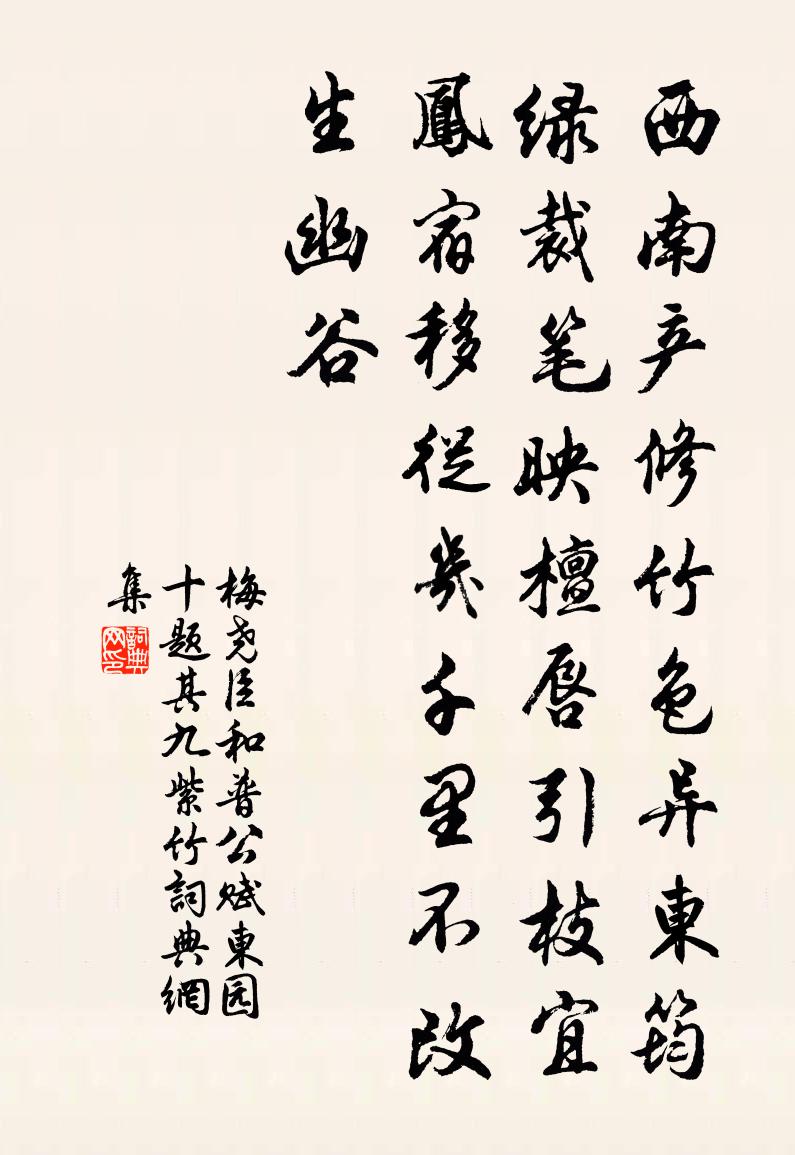 西南产修竹色异東筠
绿裁笔映檀唇引枝宜
鳳宿移從幾千里不改
生幽谷
梅尧臣和普公赋東园
十题其九紫竹詞典網
集
詞典
网印